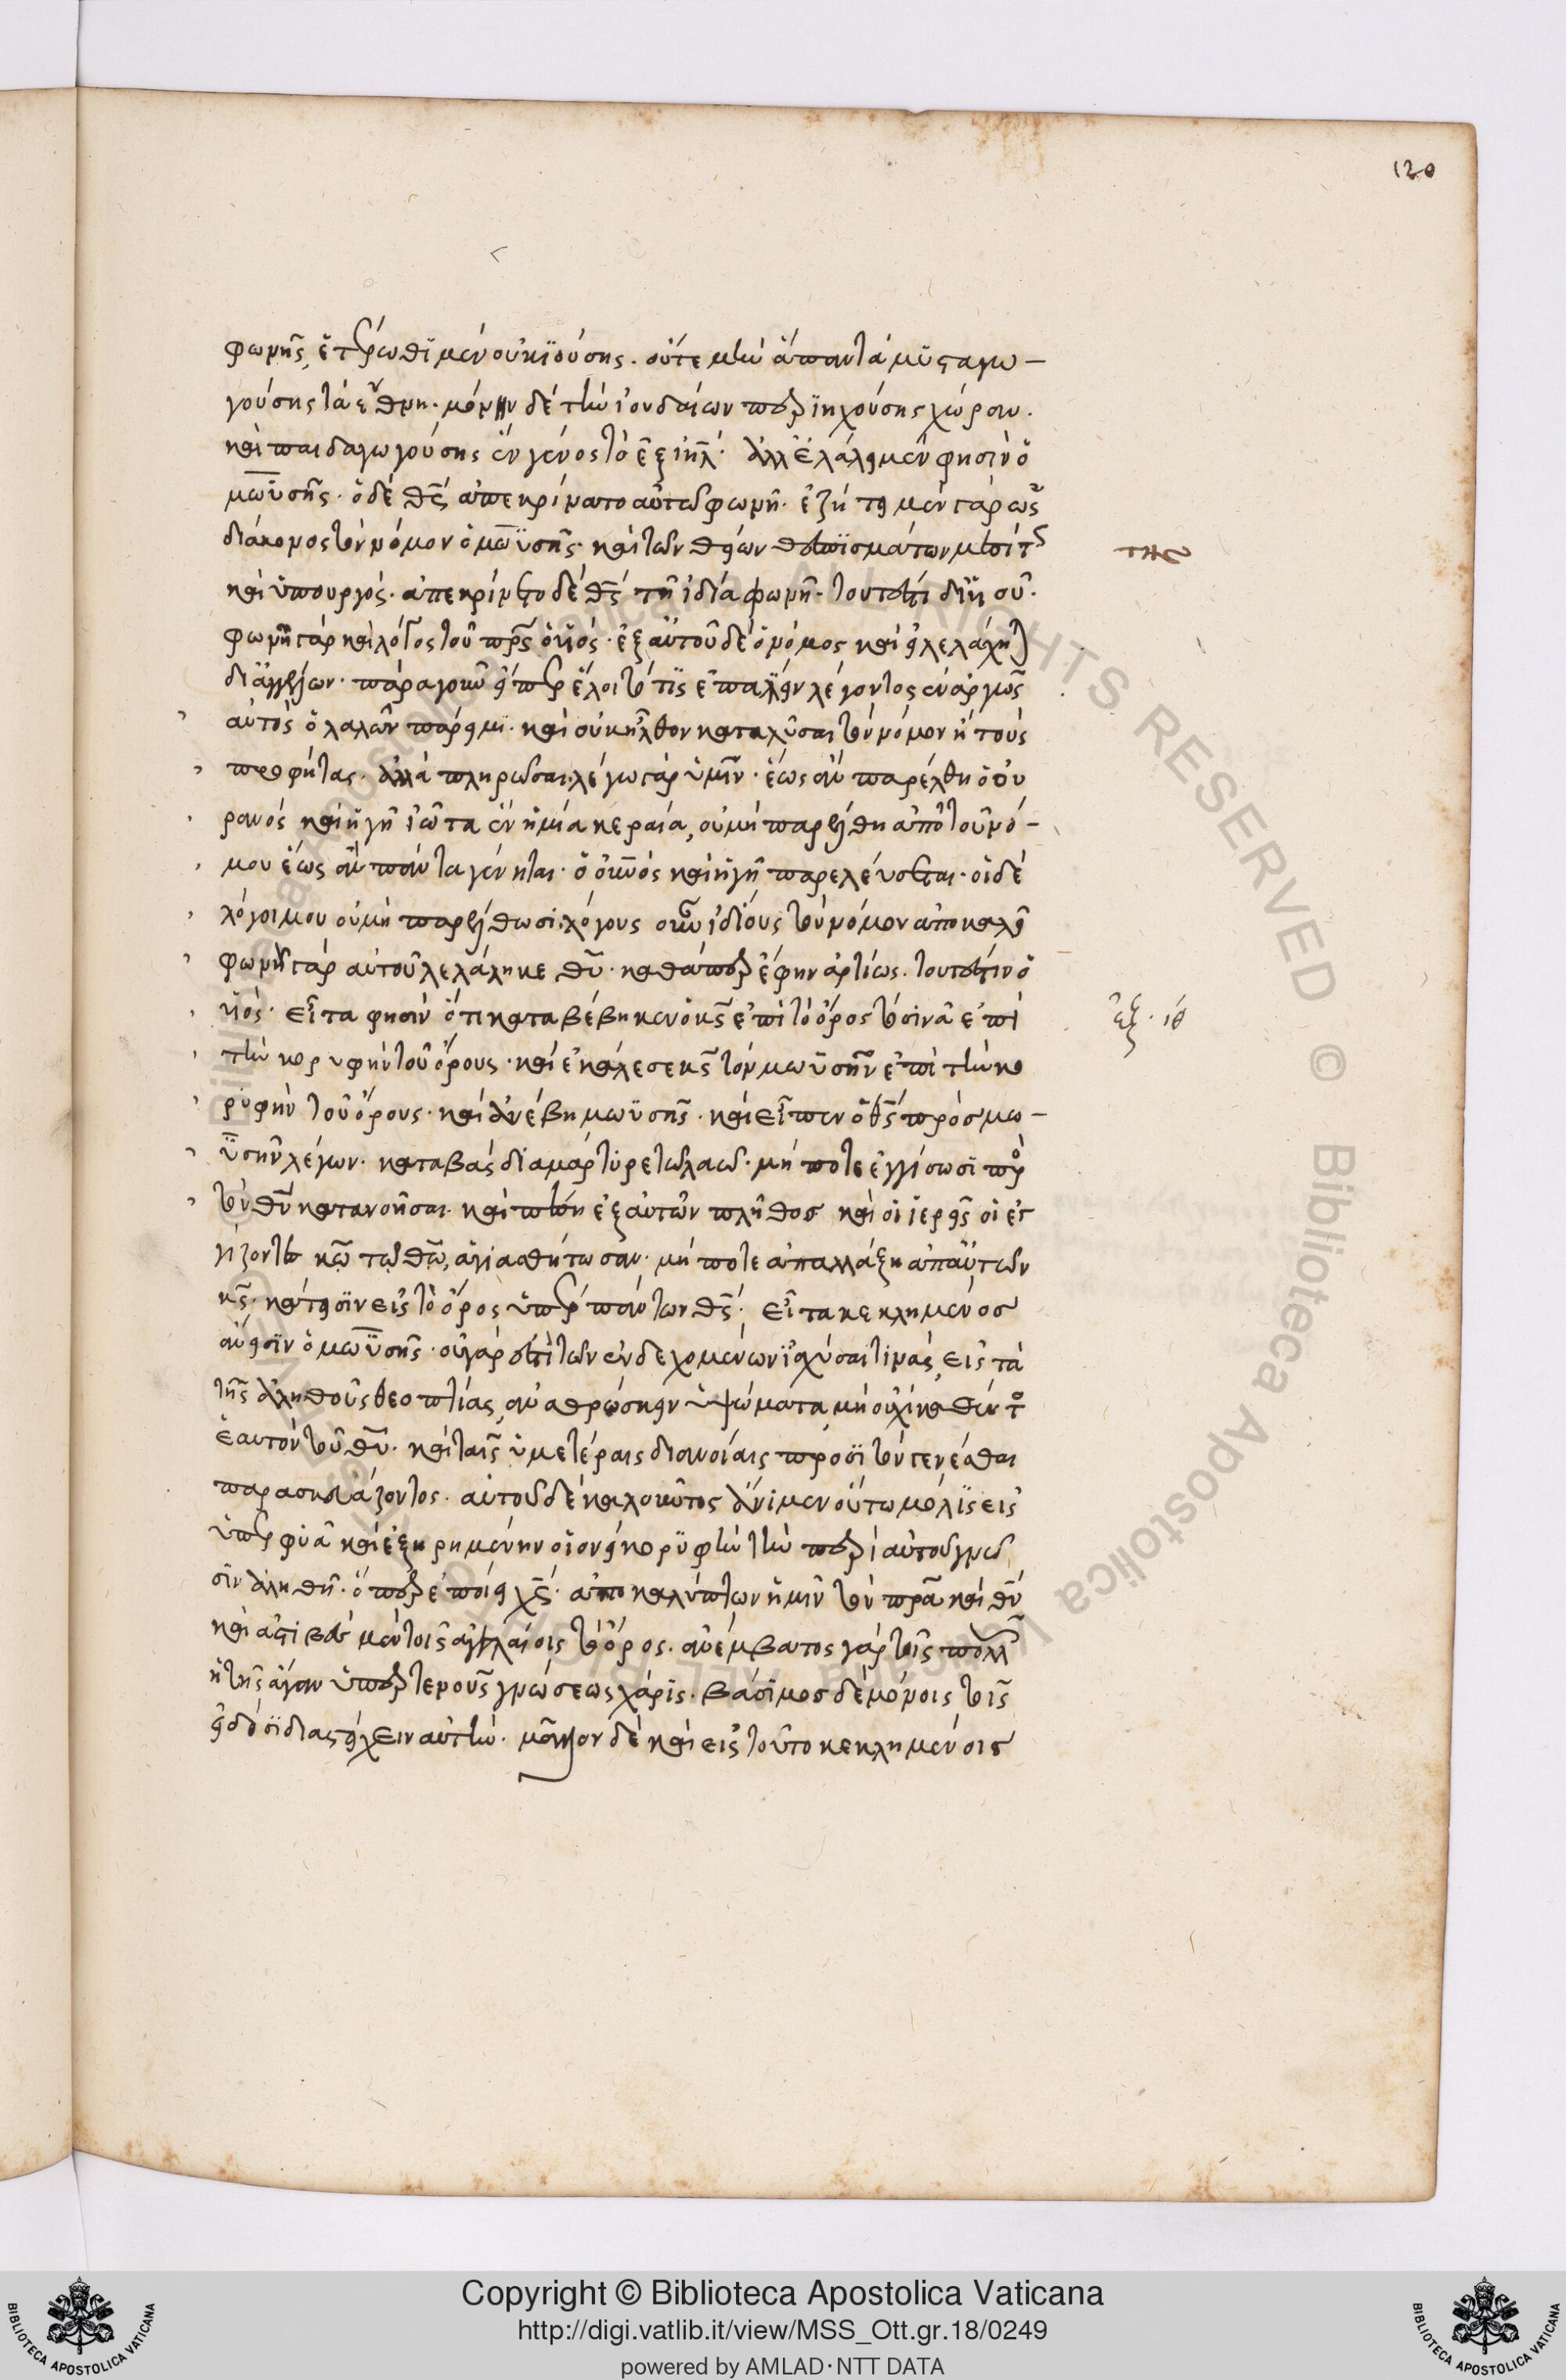 120
φωνῆς, ἑτέρωθι μὲν οὐκ ἰούσης. οὔτε μὴν ἅπαντα μυσταγω-
γούσης τὰ ἔθνη. μόνην δὲ τὴν ἰουδαίων περιηχούσης χώραν.
καὶ παιδαγωγούσης ἓν γένος τὸ ἐξ ιηλ. ἀλλ' ἐλάλει μὲν φησὶν ὁ
μωϋσῆς. ὁ δὲ θς ἀπεκρίνατο αὐτῷ φωνῇ. ἐζήτει μὲν γὰρ ὡς
διάκονος τὸν νόμον ὁ μωϋσῆς. καὶ τῶν θείων θεσπισμάτων μεσίτης
καὶ ὑπουργός. ἀπεκρίνετο δὲ θς τῇ ἰδίᾳ φωνῇ. τουτέστι δι' υἱοῦ.
φωνὴ γὰρ καὶ λόγος τοῦ πρς ὁ υἱός. ἐξ αὐτοῦ δὲ ὁ νόμος καὶ εἰ λελάληται
δι' ἀγγέλων. παράγοιτ' ἂν εἴπερ ἕλοιτό τις ἐπαΐειν λέγοντος ἐναργῶς
αὐτὸς ὁ λαλῶν πάρειμι. καὶ οὐκ ἦλθον καταλῦσαι τὸν νόμον ἢ τοὺς
προφήτας. ἀλλὰ πληρῶσαι. λέγω γὰρ ὑμῖν. ἕως ἂν παρέλθῃ ὁ οὐ
ρανός καὶ ἡ γῆ ἰῶτα ἓν ἢ μία κεραία, οὐ μὴ παρέλθῃ ἀπὸ τοῦ νό-
μου ἕως ἂν πάντα γένηται. ὁ οὐνός καὶ ἡ γῆ παρελεύσεται. οἱ δὲ
λόγοι μου οὐ μὴ παρέλθωσι. λόγους οὖν ἰδίους τὸν νόμον ἀποκαλεῖ
φωνὴ γὰρ αὐτοῦ λελάληκε θυ. καθάπερ ἔφην ἀρτίως. τουτέστιν ὁ
υἱός. εἶτα φησὶν ὅτι καταβέβηκεν ὁ κς ἐπὶ τὸ ὄρος τὸ σινᾶ ἐπὶ
τὴν κορυφὴν τοῦ ὄρους. καὶ ἐκάλεσε κς τὸν μωϋσῆν ἐπὶ τὴν κο
ρυφὴν τοῦ ὄρους. καὶ ἀνέβη μωϋσῆς. καὶ εἶπεν ὁ θς πρὸς μω-
ϋσῆν λέγων. καταβὰς διαμάρτυρε τῷ λαῷ. μή ποτε ἐγγίσωσι πρὸς
τὸν θν κατανοῆσαι. καὶ πέσῃ ἐξ αὐτῶν πλῆθος καὶ οἱ ἱερεῖς οἱ ἐγ
γίζοντες κω τῷ θω, ἁγιασθήτωσαν. μή ποτε ἀπαλλάξῃ ἀπ' αὐτῶν
κς. κάτεισιν εἰς τὸ ὄρος ὑπὲρ πάντων θς. εἶτα κεκλημένος
ἄνεισιν ὁ μωϋσῆς. οὐ γάρ ἐστι τῶν ἐνδεχομένων ἰσχῦσαι τινάς, εἰς τὰ
τῆς ἀληθοῦς θεοπτίας, ἀναθρώσκειν ὑψώματα, μὴ οὐχὶ καθέντος
ἑαυτὸν τοῦ θυ. καὶ ταῖς ἡμετέραις διανοίαις προσιτὸν γενέσθαι
παρασκευάζοντος. αὐτοῦ δὲ καλοῦντος ἄνιμεν οὕτω μόλις εἰς
ὑπερφυᾶ καὶ ἐξῃρημένην οἱονεὶ κορυφὴν τὴν περὶ αὐτοῦ γνῶ
σιν ἀληθῆ. ὅπερ ἐποίει χς. ἀποκαλύπτων ἡμῖν τὸν πρα καὶ θν
καὶ ἀστιβὲς μὲν τοῖς ἀγελαίοις τὸ ὄρος. ἀνέμβατος γὰρ τοῖς πολλοῖς
ἡ τῆς ἄγαν ὑπερτεροῦς γνώσεως χάρις. βάσιμος δὲ μόνοις τοῖς
εἰδόσι διαστείχειν αὐτήν. μᾶλλον δὲ καὶ εἰς τοῦτο κεκλημένοις
της
ἐξ. ιθ
Copyright © Biblioteca Apostolica Vaticana
http://digi.vatlib.it/view/MSS_Ott.gr.18/0249
powered by AMLAD·NTT DATA